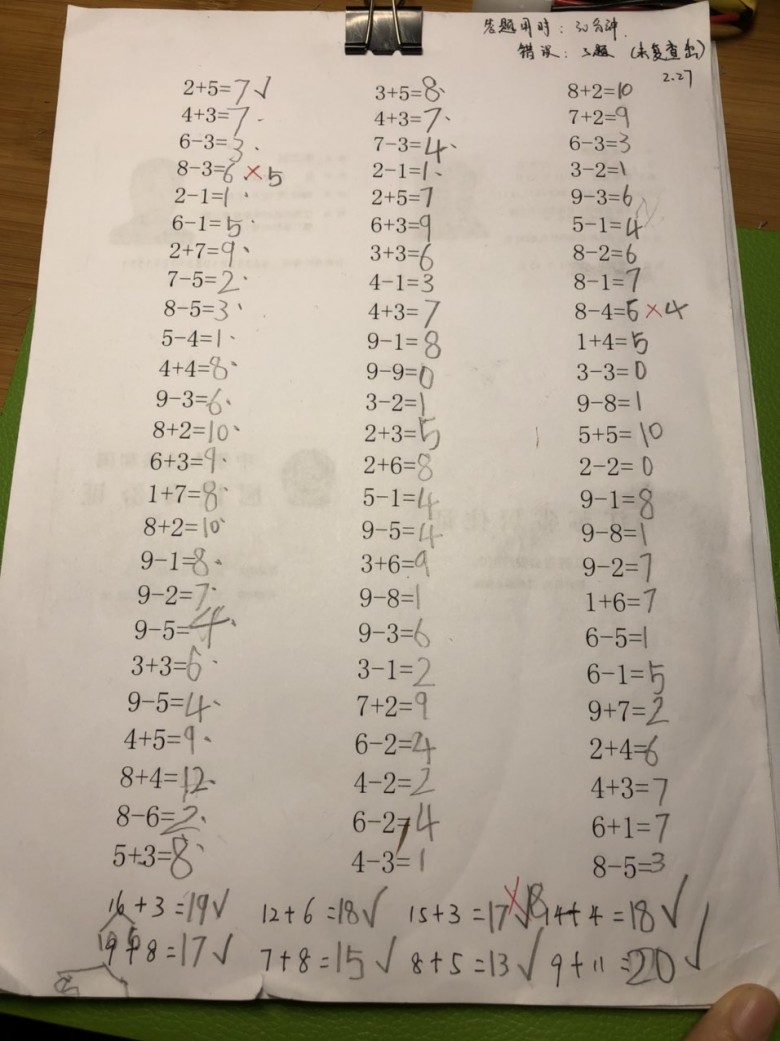 答题用时：30分钟.
错误：3题（未复查出）
2.27
2+5=7√ 3+5=8 8+2=10
4+3=7 4+3=7 7+2=9
6-3=3 7-3=4 6-3=3
8-3=6×5 2-1=1 3-2=1
2-1=1 2+5=7 9-3=6
6-1=5 6+3=9 5-1=4
2+7=9 3+3=6 8-2=6
7-5=2 4-1=3 8-1=7
8-5=3 4+3=7 8-4=5×4
5-4=1 9-1=8 1+4=5
4+4=8 9-9=0 3-3=0
9-3=6 3-2=1 9-8=1
8+2=10 2+3=5 5+5=10
6+3=9 2+6=8 2-2=0
1+7=8 5-1=4 9-1=8
8+2=10 9-5=4 9-8=1
9-1=8 3+6=9 9-2=7
9-2=7 9-8=1 1+6=7
9-5=4 9-3=6 6-5=1
3+3=6 3-1=2 6-1=5
9-5=4 7+2=9 9+7=2
4+5=9 6-2=4 2+4=6
8+4=12 4-2=2 4+3=7
8-6=2 6-2=4 6+1=7
5+3=8 4-3=1 8-5=3
16+3=19√ 12+6=18√ 15+3=17×√18 14+4=18√
9+8=17√ 7+8=15√ 8+5=13√ 9+11=20√